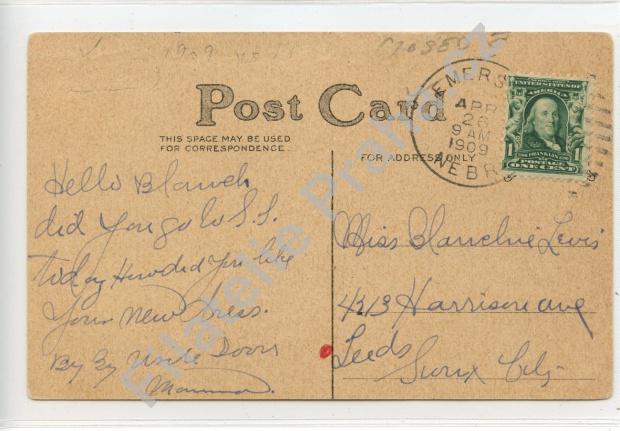 Post Card
THIS SPACE MAY BE USED
FOR CORRESPONDENCE.
FOR ADDRESS ONLY
EMERS
APR
26
9 AM
1909
NEBR
UNITED STATES OF
AMERICA
FRANKLIN
POSTAGE
1 ONE CENT 1
Hello Blanch
did you go to S.S.
today How did you like
your New dress.
By By
Miss Blanche Lewis
4213 Harrison ave
Leeds
Sioux City
Filatelie Praha.cz